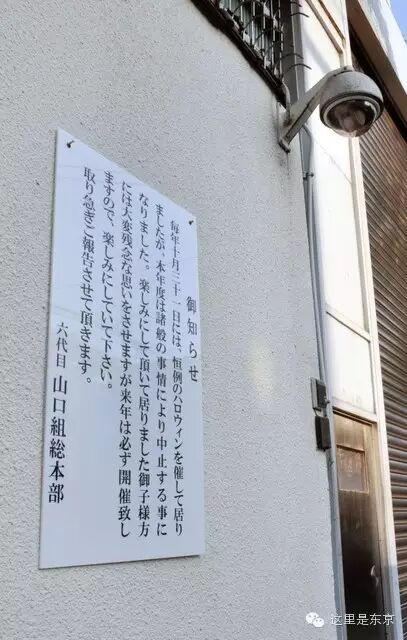 御知らせ
毎年十月三十一日には、恒例のハロウィンを催して居り
ましたが、本年度は諸般の事情により中止する事に
なりました。楽しみにして頂いて居りました御子様方
には大変残念な思いをさせますが来年は必ず開催致し
ますので、楽しみにしていて下さい。
取り急ぎご報告させて頂きます。
六代目 山口組総本部
这里是东京